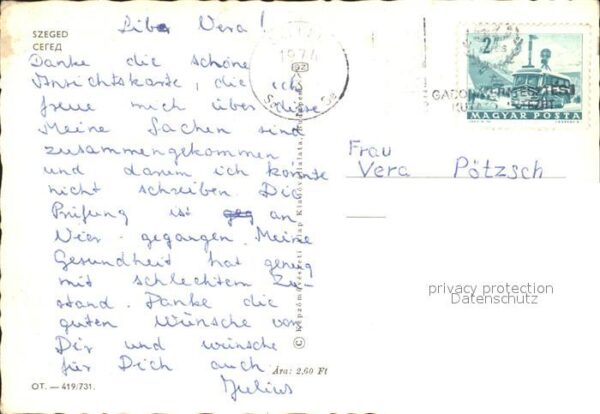 SZEGED
СЕГЕД
Liber Vera!
Danke die schöne
Ansichtskarte, die ich
freue mich über diese
Meine Sachen sind
zusammengekommen
und darum ich könnte
nicht schreiben. Die
Prüfung ist geg an
Vier - gegangen. Meine
Gesundheit hat genug
mit schlechtem Zu-
stand. Danke die
guten Wünsche von
Dir und wünsche
für Dich auch
Julius
OT. — 419/731.
Ára: 2,60 Ft
© Képzőművészeti Alap Kiadóvállalata, Budapest
1974
2
MAGYAR POSTA
Frau
Vera Pötzsch
privacy protection
Datenschutz